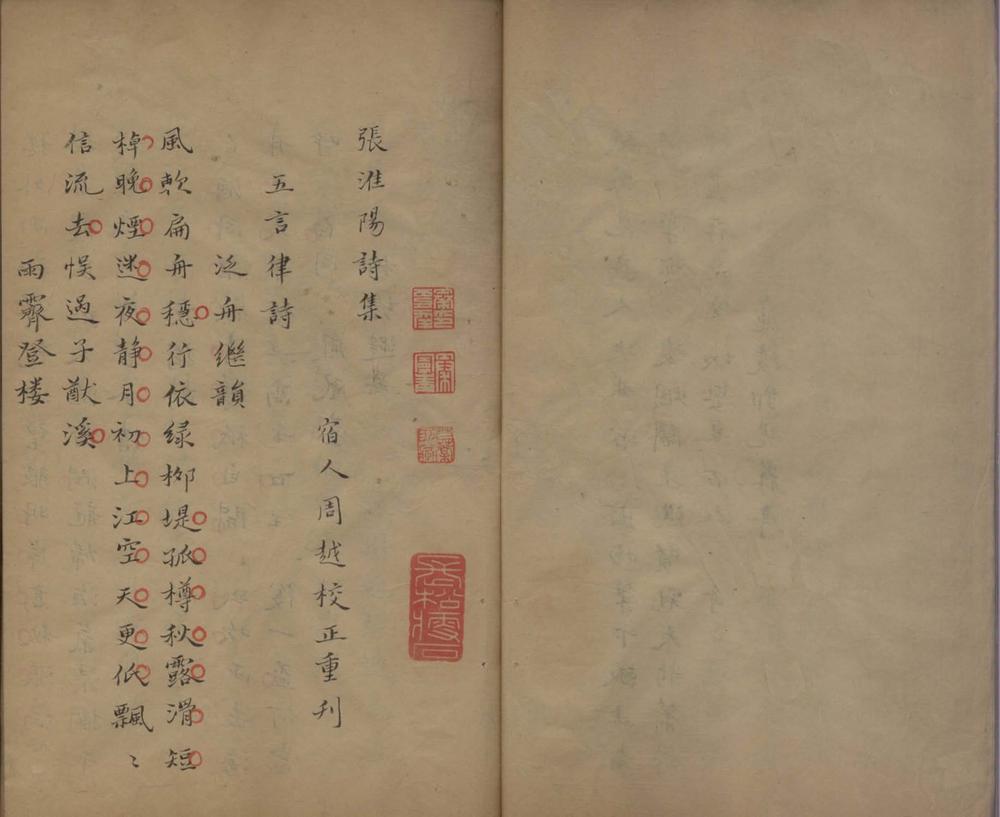 張淮陽詩集
宿人周越校正重刋
五言律詩
泛舟繼韻
風軟扁舟穩行依緑柳堤孤樽秋露滑短
棹晚煙迷夜静月初上江空天更低飄〻
信流去悞過子猷溪
雨霽登楼